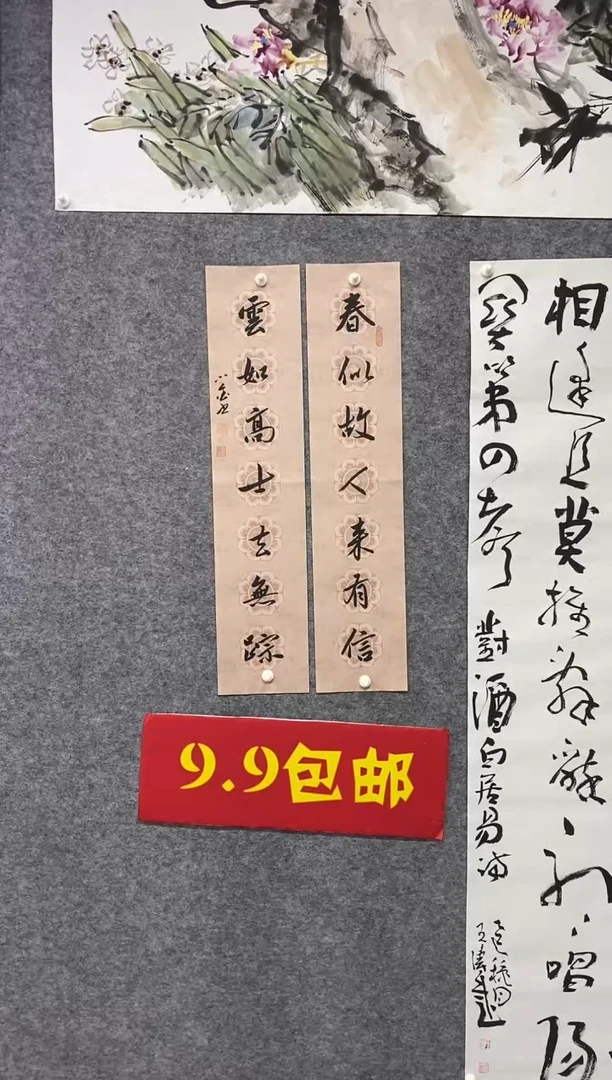 春似故人来有信
雲如高士去無踪
9.9包邮
相逢且莫推辞醉聽唱陽
關第四聲
對酒白居易詩